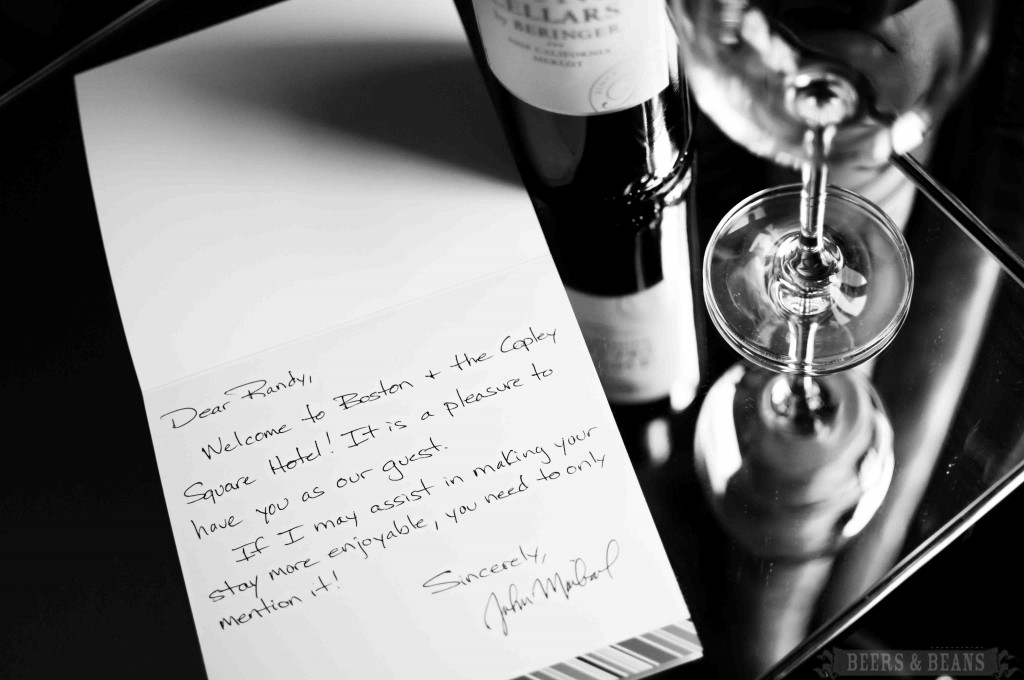 CELLARS
by BERINGER
CALIFORNIA
MERLOT
Dear Randy,
Welcome to Boston + the Copley
Square Hotel! It is a pleasure to
have you as our guest.
If I may assist in making your
stay more enjoyable, you need to only
mention it!
Sincerely,
John
BEERS & BEANS